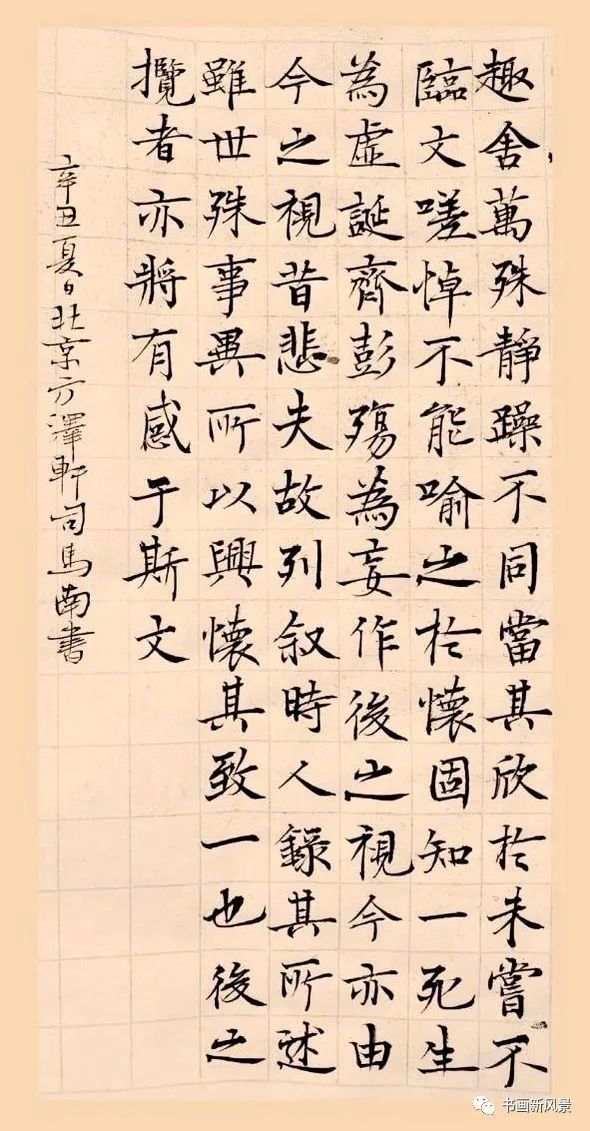 趣舍萬殊靜躁不同當其欣於未嘗不
臨文嗟悼不能喻之於懷固知一死生
為虛誕齊彭殤為妄作後之視今亦由
今之視昔悲夫故列叙時人錄其所述
雖世殊事異所以興懷其致一也後之
攬者亦將有感于斯文
辛丑夏日北京方澤軒司馬南書
书画新风景